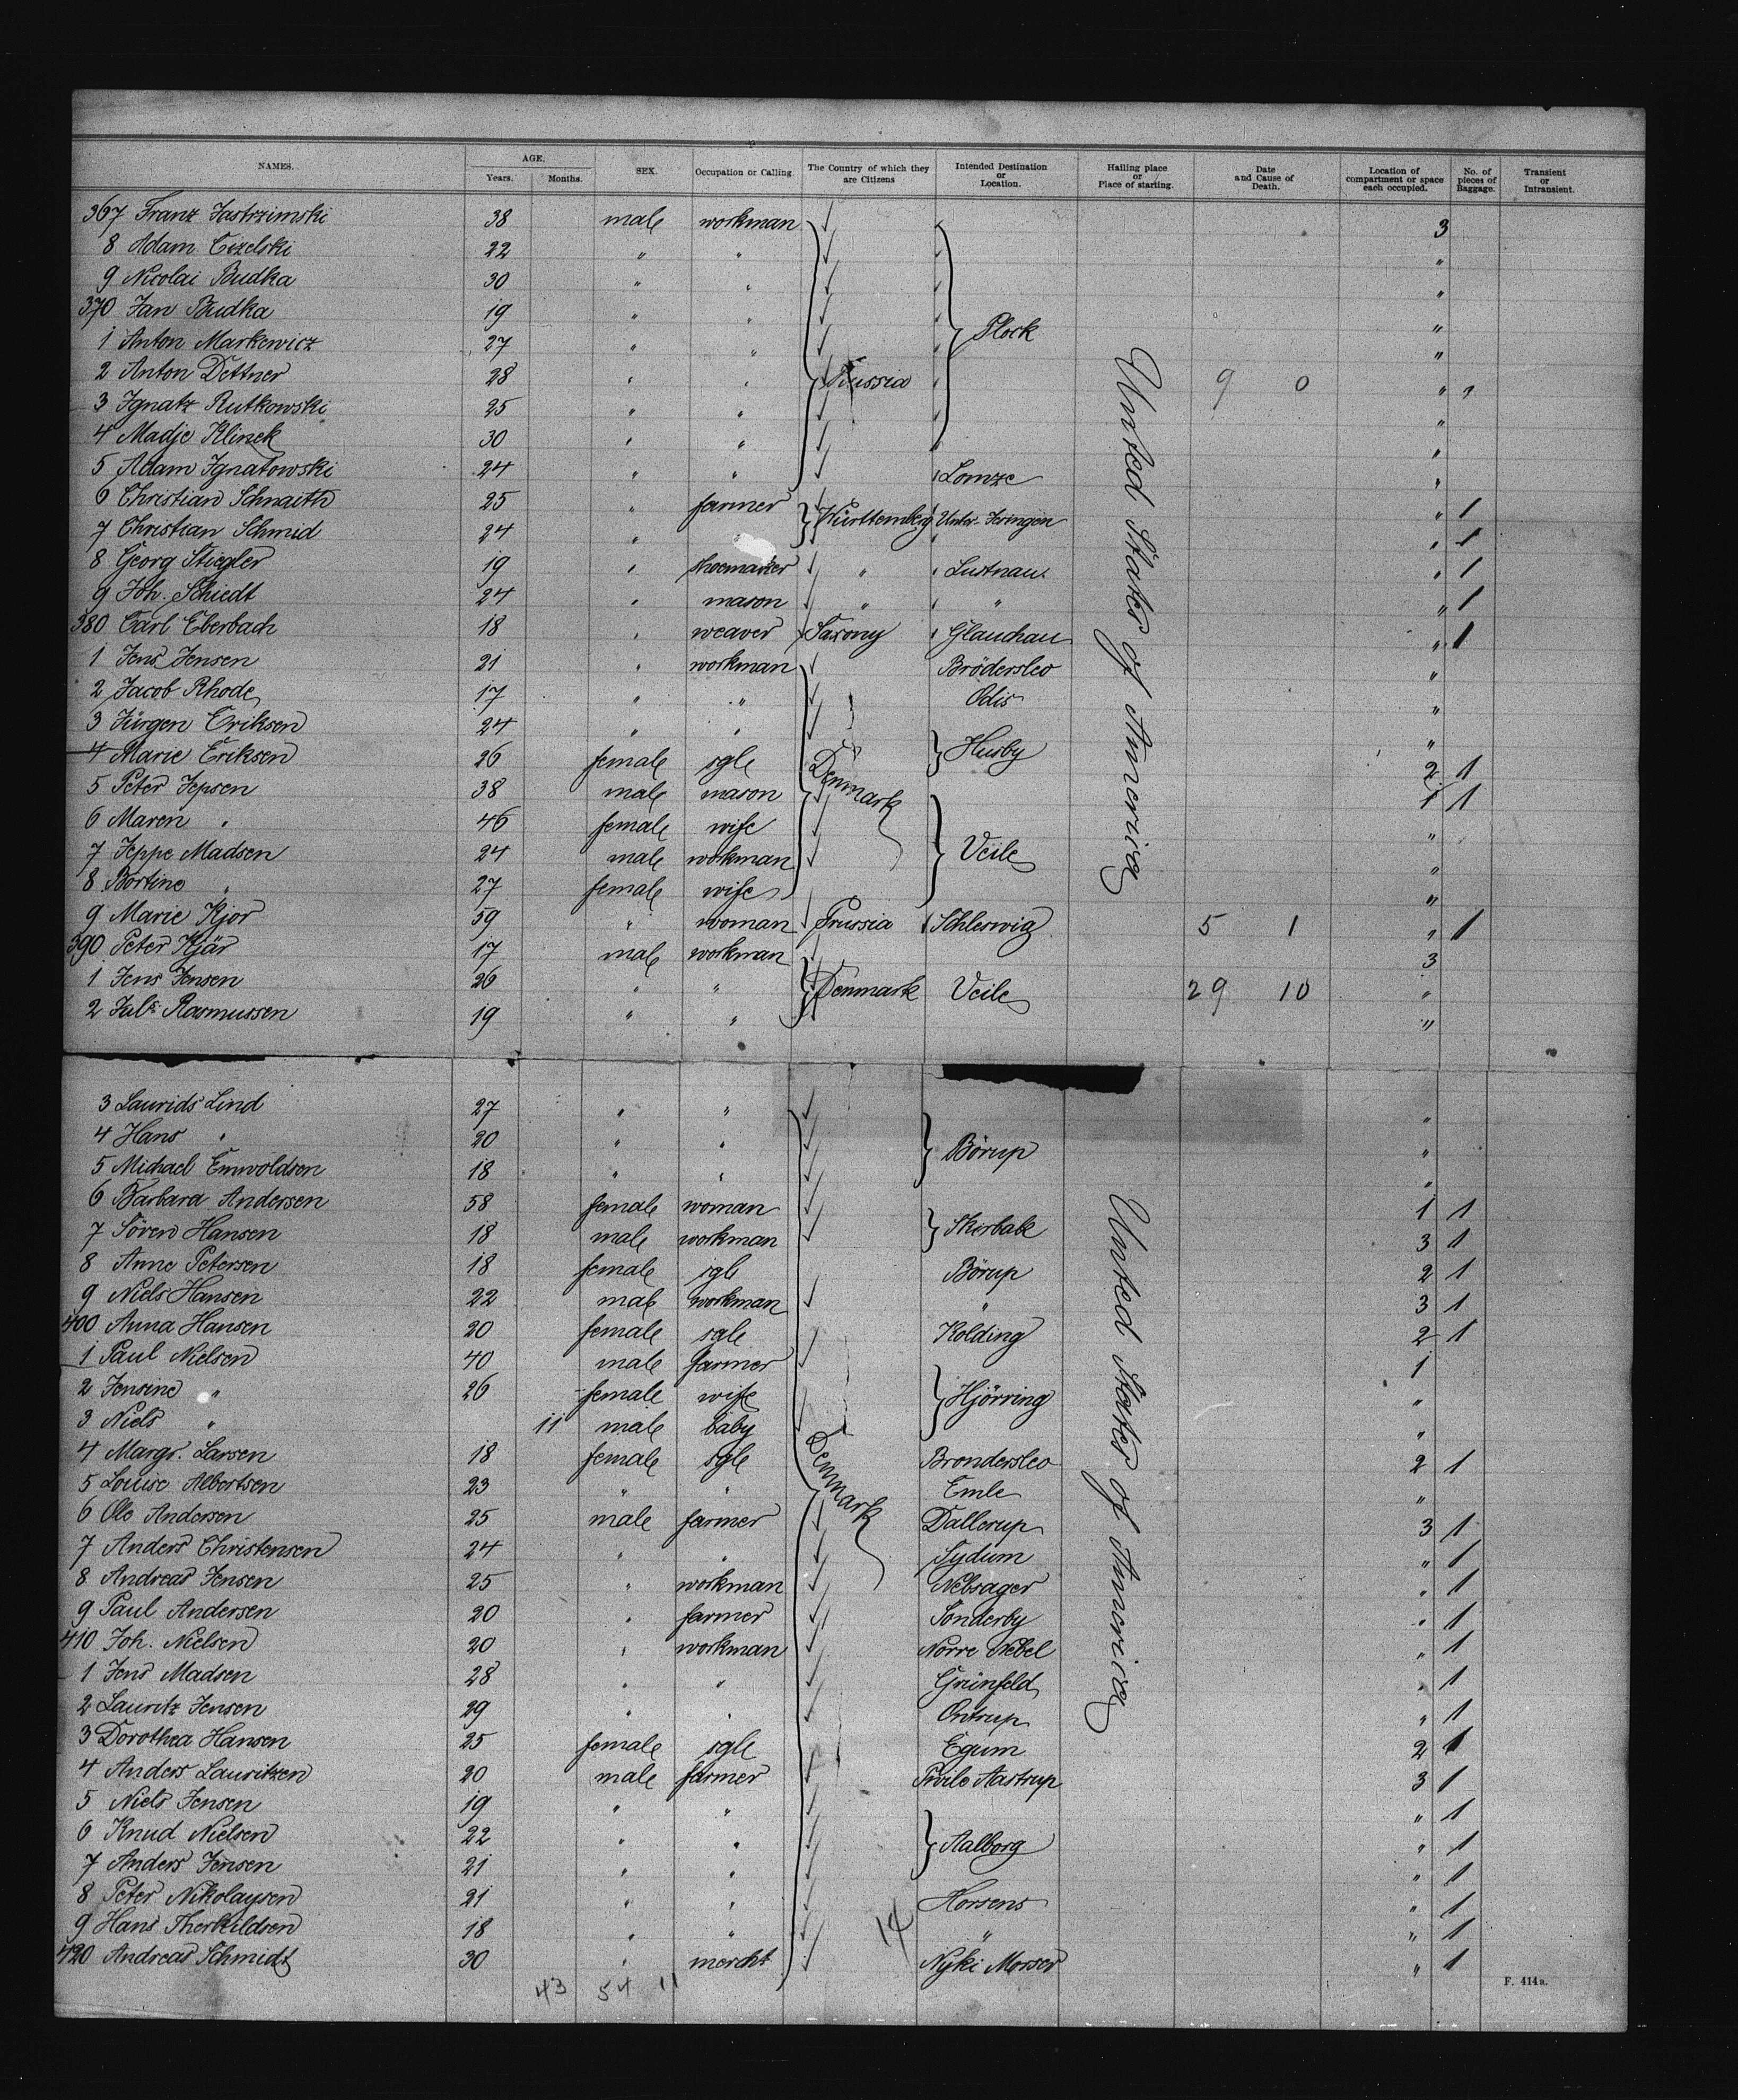 NAMES. AGE. Years. Months. SEX. Occupation or Calling. The Country of which they are Citizens Intended Destination or Location. Hailing place or Place of starting. Date and Cause of Death. Location of compartment or space each occupied. No. of pieces of Baggage. Transient or Intransient.
367 Franz Jastrzimski 38 male workman 3
8 Adam Cizelski 22 " " "
9 Nicolai Budka 30 " " "
370 Jan Budka 19 " " "
1 Anton Markewicz 27 " " Plock "
2 Anton Dettner 28 " " Russia 9 0 " "
3 Ignatz Rutkowski 25 " " "
4 Madje Klinek 30 " " "
5 Adam Ignatowski 24 " " Lomze "
6 Christian Schnaith 25 " farmer Württemberg Unter-Jeringen " 1
7 Christian Schmid 24 " " 1
8 Georg Stiegler 19 " shoemaker " Lustnau " 1
9 Joh. Schiedt 24 " mason " " " 1
380 Carl Eberbach 18 " weaver Saxony Glauchau " 1
1 Jens Jensen 21 " workman Bröderslev "
2 Jacob Rhode 17 " " Odis "
3 Jürgen Eriksen 24 " " "
4 Marie Eriksen 26 female sgle Denmark Husby 2 1
5 Peter Jepsen 38 male mason 1 1
6 Maren " 46 female wife "
7 Jeppe Madsen 24 male workman Veile "
8 Bertine " 27 female wife "
9 Marie Kjor 59 " woman Prussia Schleswig 5 1 " 1
390 Peter Kjär 17 male workman 3
1 Jens Jensen 26 " " Denmark Veile 29 10 "
2 Juls Rasmussen 19 " " "
United States of America
3 Laurids Lind 27 " " "
4 Hans " 20 " " Börup "
5 Michael Emwoldsen 18 " " "
6 Barbara Andersen 58 female woman 1 1
7 Sören Hansen 18 male workman Skirbak 3 1
8 Anne Petersen 18 female sgle Börup 2 1
9 Niels Hansen 22 male workman " 3 1
400 Anna Hansen 20 female sgle Kolding 2 1
1 Paul Nielsen 40 male farmer 1
2 Jensine " 26 female wife Hjörring "
3 Niels " 11 male baby "
4 Margr. Larsen 18 female sgle Denmark Bronderslev 2 1
5 Louise Albertsen 23 " " Emle "
6 Ole Andersen 25 male farmer Dallerup 3 1
7 Anders Christensen 24 " " Sydum " 1
8 Andreas Jensen 25 " workman Nebsager " 1
9 Paul Andersen 20 " farmer Sonderby " 1
410 Joh. Nielsen 20 " workman Norre Nebel " 1
1 Jens Madsen 28 " " Grünfeld " 1
2 Lauritz Jensen 29 " " Ontrup " 1
3 Dorothea Hansen 25 female sgle Egum 2 1
4 Anders Lauritzen 20 male farmer Aastrup 3 1
5 Niels Jensen 19 " " " 1
6 Knud Nielsen 22 " " Aalborg " 1
7 Anders Jensen 21 " " " 1
8 Peter Nikolaysen 21 " " Horsens " 1
9 Hans Therkildsen 18 " " " " 1
420 Andreas Schmidt 30 " mercht 14 " 1
United States of America
43 54 11
F. 414a.